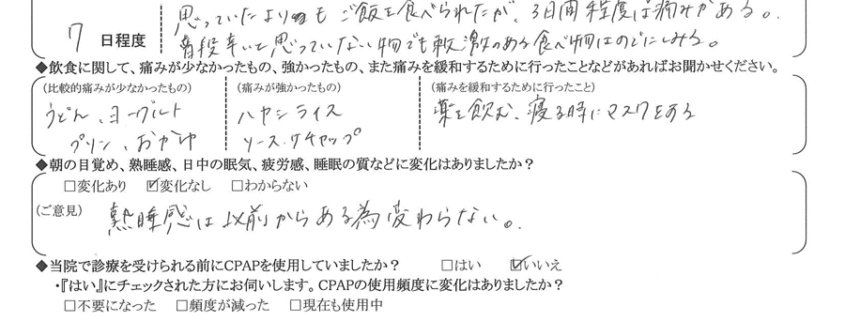 思っていたよりもご飯を食べられたが、3日間程度は痛みがある。
7 日程度 普段辛いと思っていない物でも刺激のある食べ物はのどにしみる。
◆飲食に関して、痛みが少なかったもの、強かったもの、また痛みを緩和するために行ったことなどがあればお聞かせください。
(比較的痛みが少なかったもの) (痛みが強かったもの) (痛みを緩和するために行ったこと)
うどん、ヨーグルト ハヤシライス 薬を飲む、寝る時にマスクをする
プリン、おかゆ ソース・ケチャップ
◆朝の目覚め、熟睡感、日中の眠気、疲労感、睡眠の質などに変化はありましたか？
□変化あり ☑変化なし □わからない
(ご意見) 熟睡感は以前からある為変わらない。
◆当院で診療を受けられる前にCPAPを使用していましたか？ □はい ☑いいえ
・『はい』にチェックされた方にお伺いします。CPAPの使用頻度に変化はありましたか？
□不要になった □頻度が減った □現在も使用中